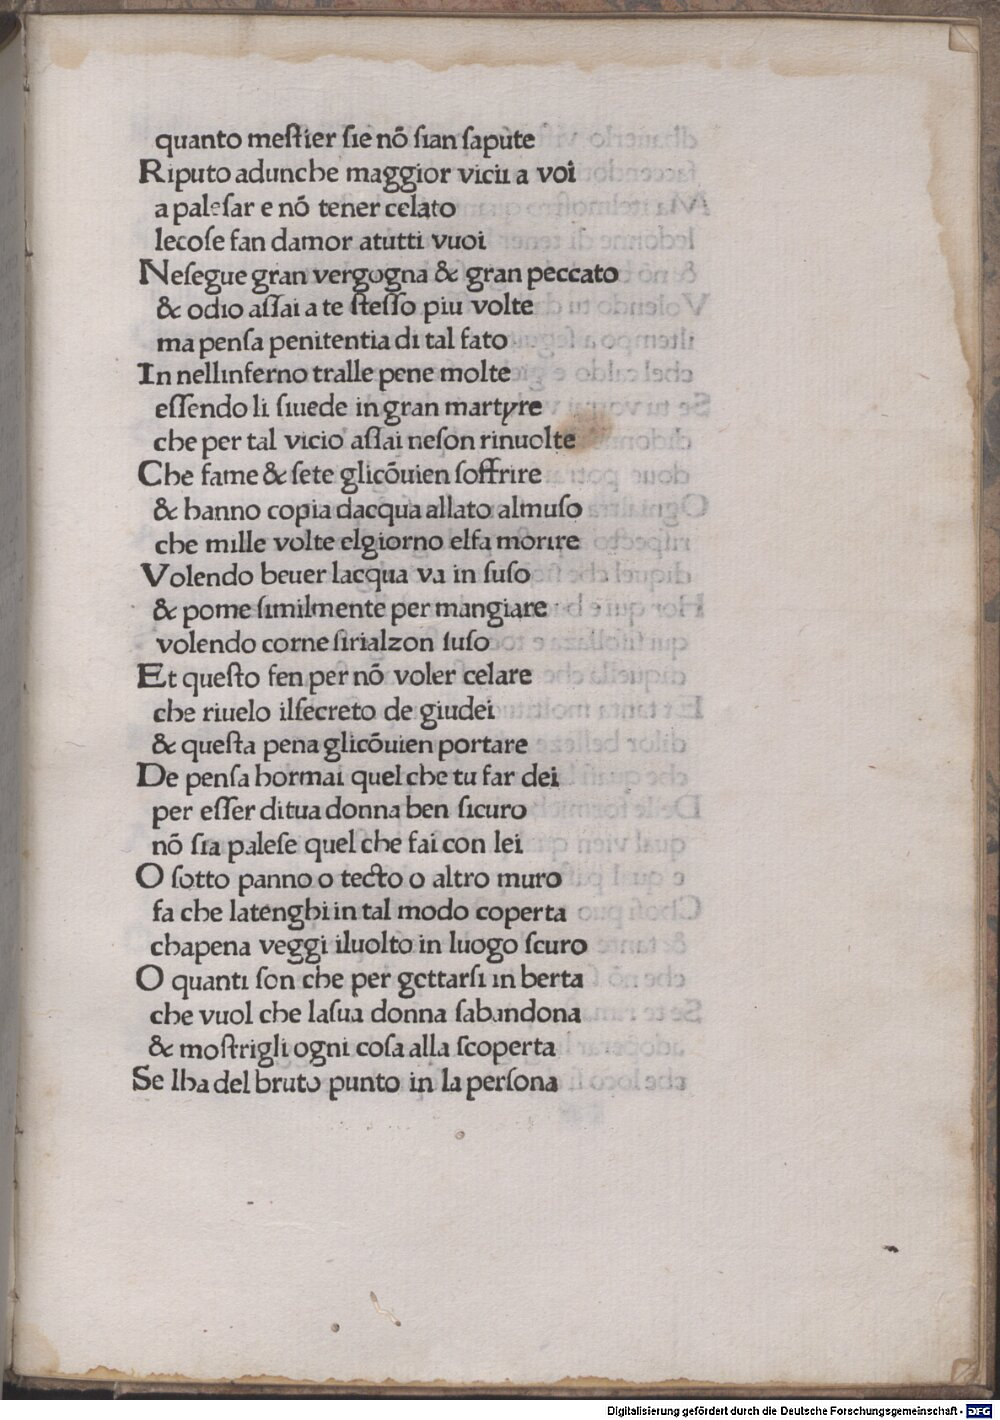 quanto meſtier ſie nō ſian ſapute
Riputo adunche maggior vicii a voi
a paleſar e nō tener celato
lecoſe fan damor atutti vuoi
Neſegue gran vergogna & gran peccato
& odio aſſai a te ſteſſo piu volte
ma penſa penitentia di tal fato
In nellinferno tralle pene molte
eſſendo li ſiuede in gran martyre
che per tal vicio aſſai neſon rinuolte
Che fame & ſete glicōuien ſoffrire
& hanno copia dacqua allato almuſo
che mille volte elgiorno elfa morire
Volendo beuer lacqua va in ſuſo
& pome ſimilmente per mangiare
volendo corne ſirialzon ſuſo
Et queſto fen per nō voler celare
che riuelo ilſecreto de giudei
& queſta pena glicōuien portare
De penſa hormai quel che tu far dei
per eſſer ditua donna ben ſicuro
nō ſia paleſe quel che fai con lei
O ſotto panno o tecto o altro muro
fa che latenghi in tal modo coperta
chapena veggi iluolto in luogo ſcuro
O quanti ſon che per gettarſi in berta
che vuol che laſua donna ſabandona
& moſtrigli ogni coſa alla ſcoperta
Se lha del bruto punto in la perſona
Digitalisierung gefördert durch die Deutsche Forschungsgemeinschaft - DFG